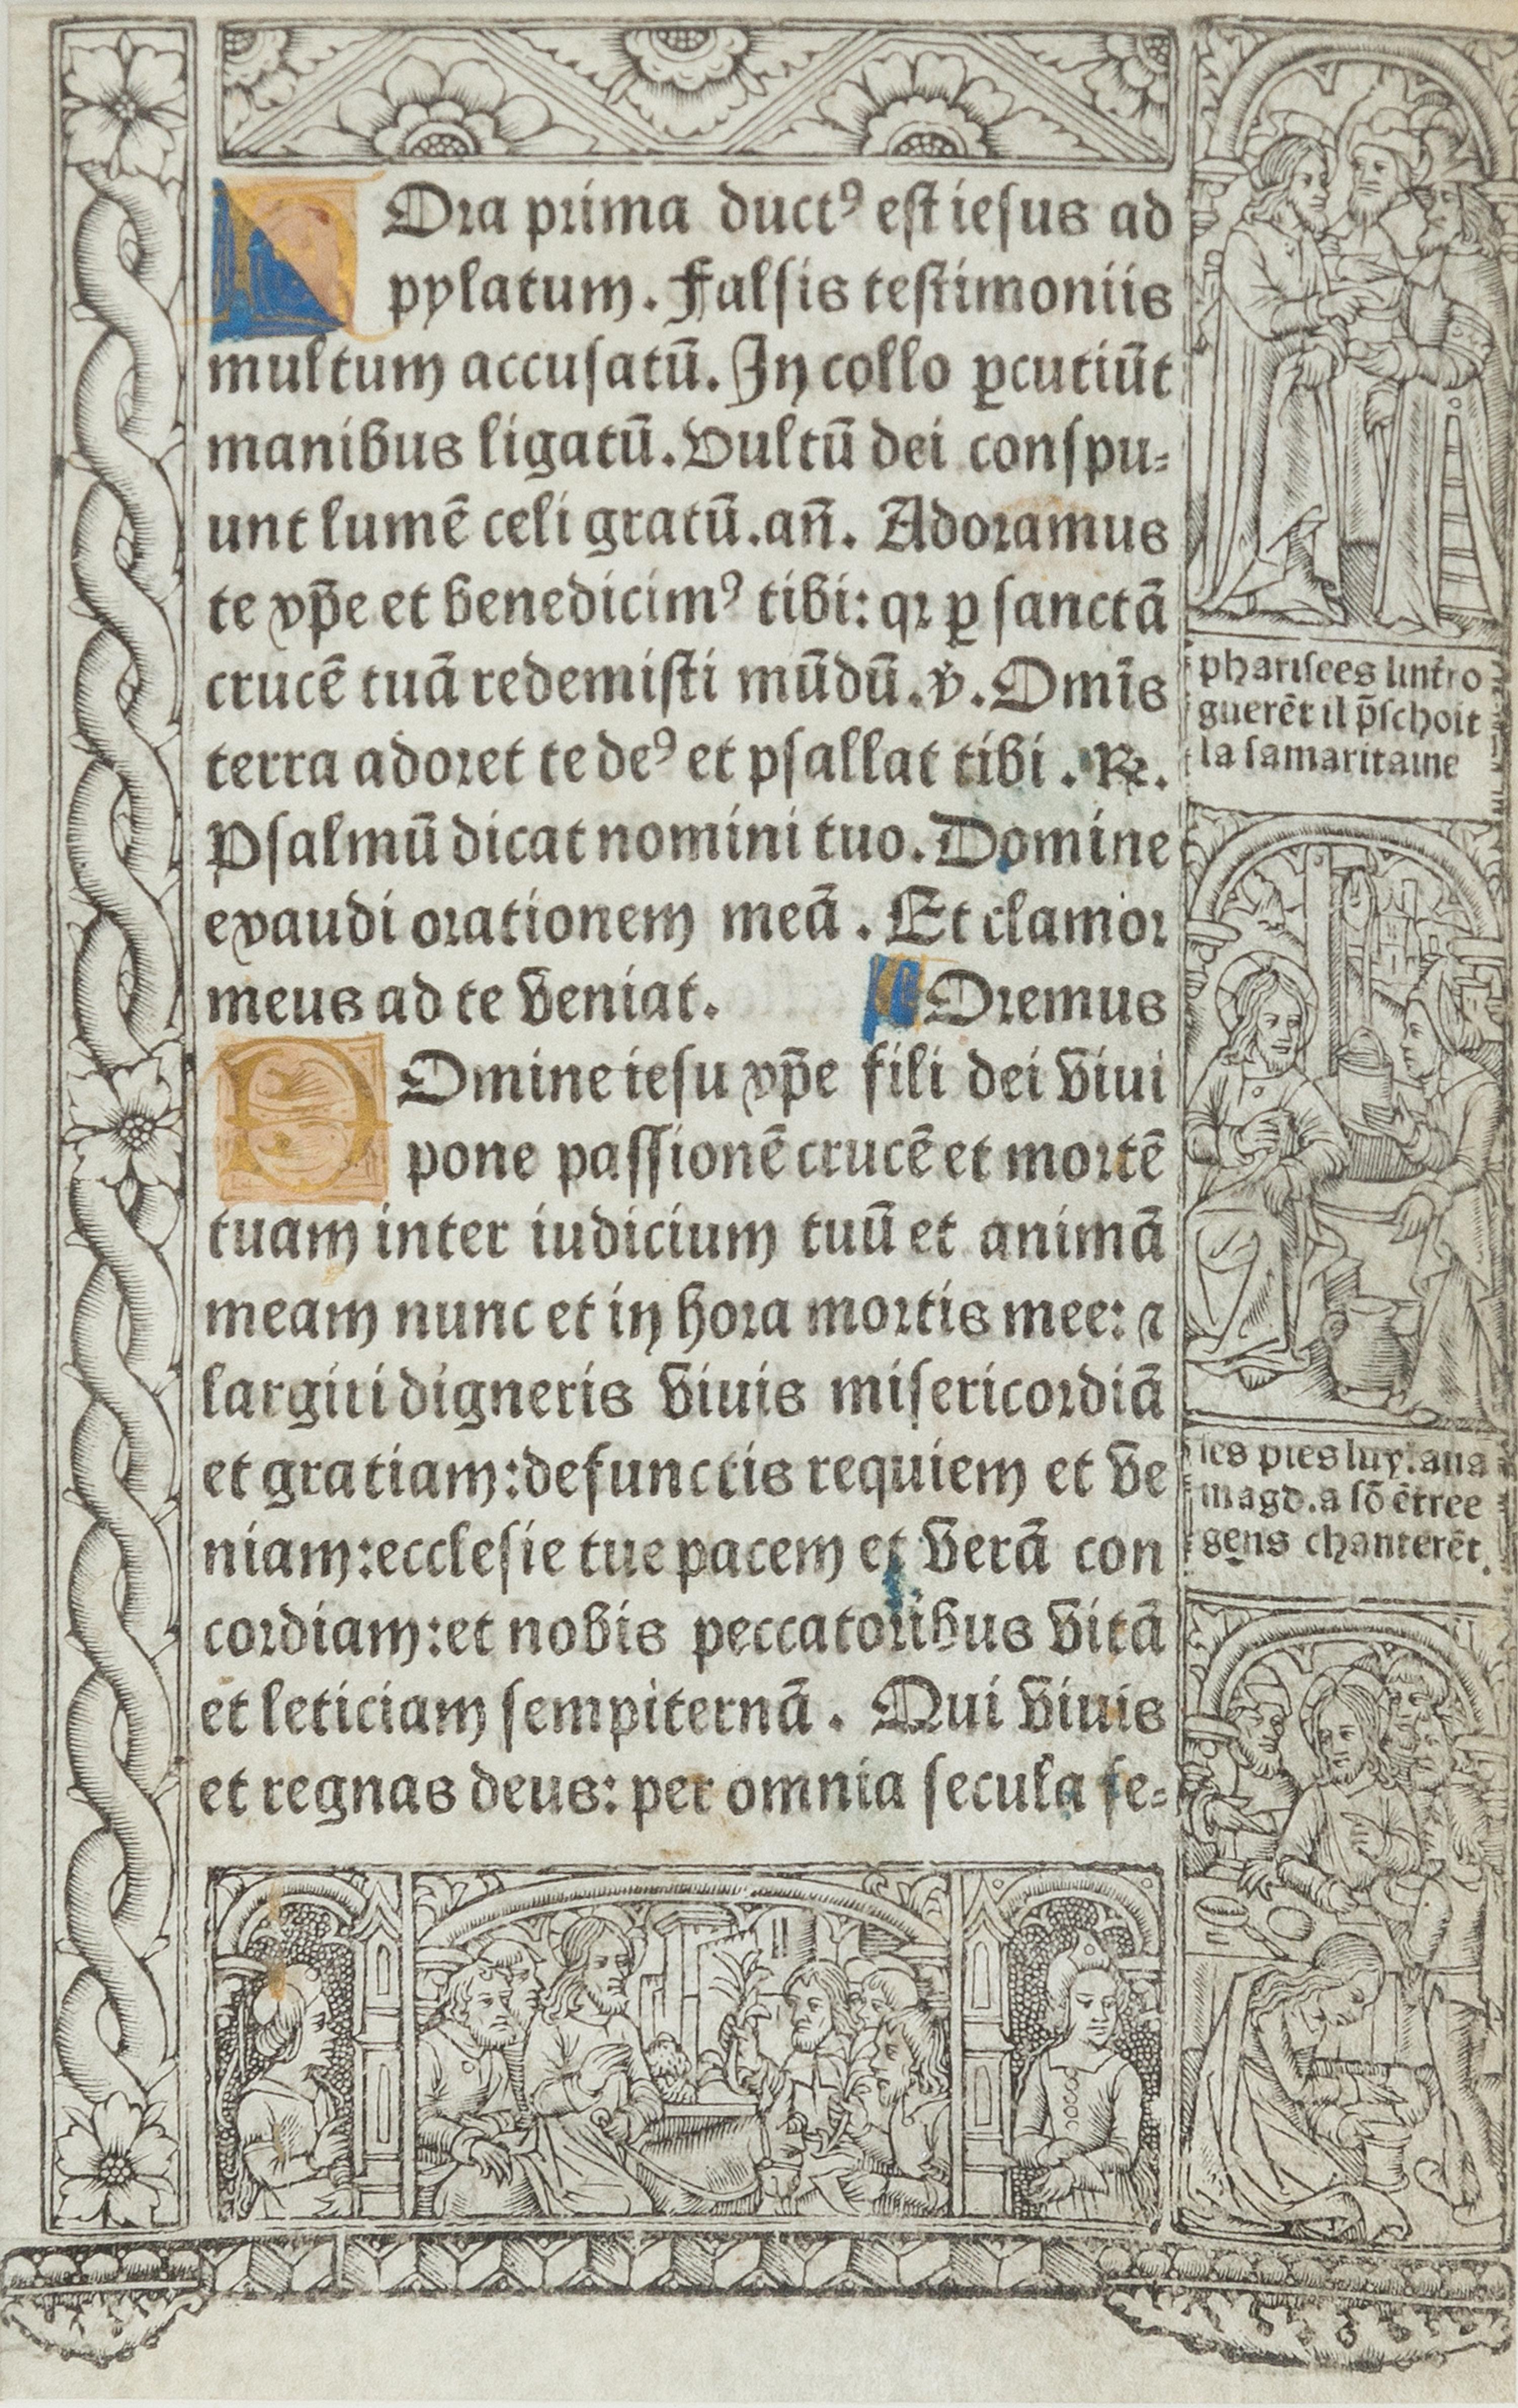 HOra prima ductꝰ est iesus ad
pylatum. Falsis testimoniis
multum accusatū. In collo ꝑcutiūt
manibus ligatū. Vultū dei conspu⸗
unt lumē celi gratū. añ. Adoramus
te xp̄e et benedicimꝰ tibi: qꝛ ꝑ sanctā
crucē tuā redemisti mūdū. ꝟ. Omīs
terra adoret te deꝰ et psallat tibi. ℟.
Psalmū dicat nomini tuo. Domine
exaudi orationem meā. Et clamor
meus ad te veniat. Oremus
DOmine iesu xp̄e fili dei viui
pone passionē crucē et mortē
tuam inter iudicium tuū et animā
meam nunc et in hora mortis mee: ⁊
largiri digneris viuis misericordiā
et gratiam: defunctis requiem et ve
niam: ecclesie tue pacem et verā con
cordiam: et nobis peccatoribus vitā
et leticiam sempiternā. Qui viuis
et regnas deus: per omnia secula se⸗
pharisees lintro
guerēt il p̄schoit
la samaritaine
les pies luy laua
magd. a sō ētree
gens chanterēt.